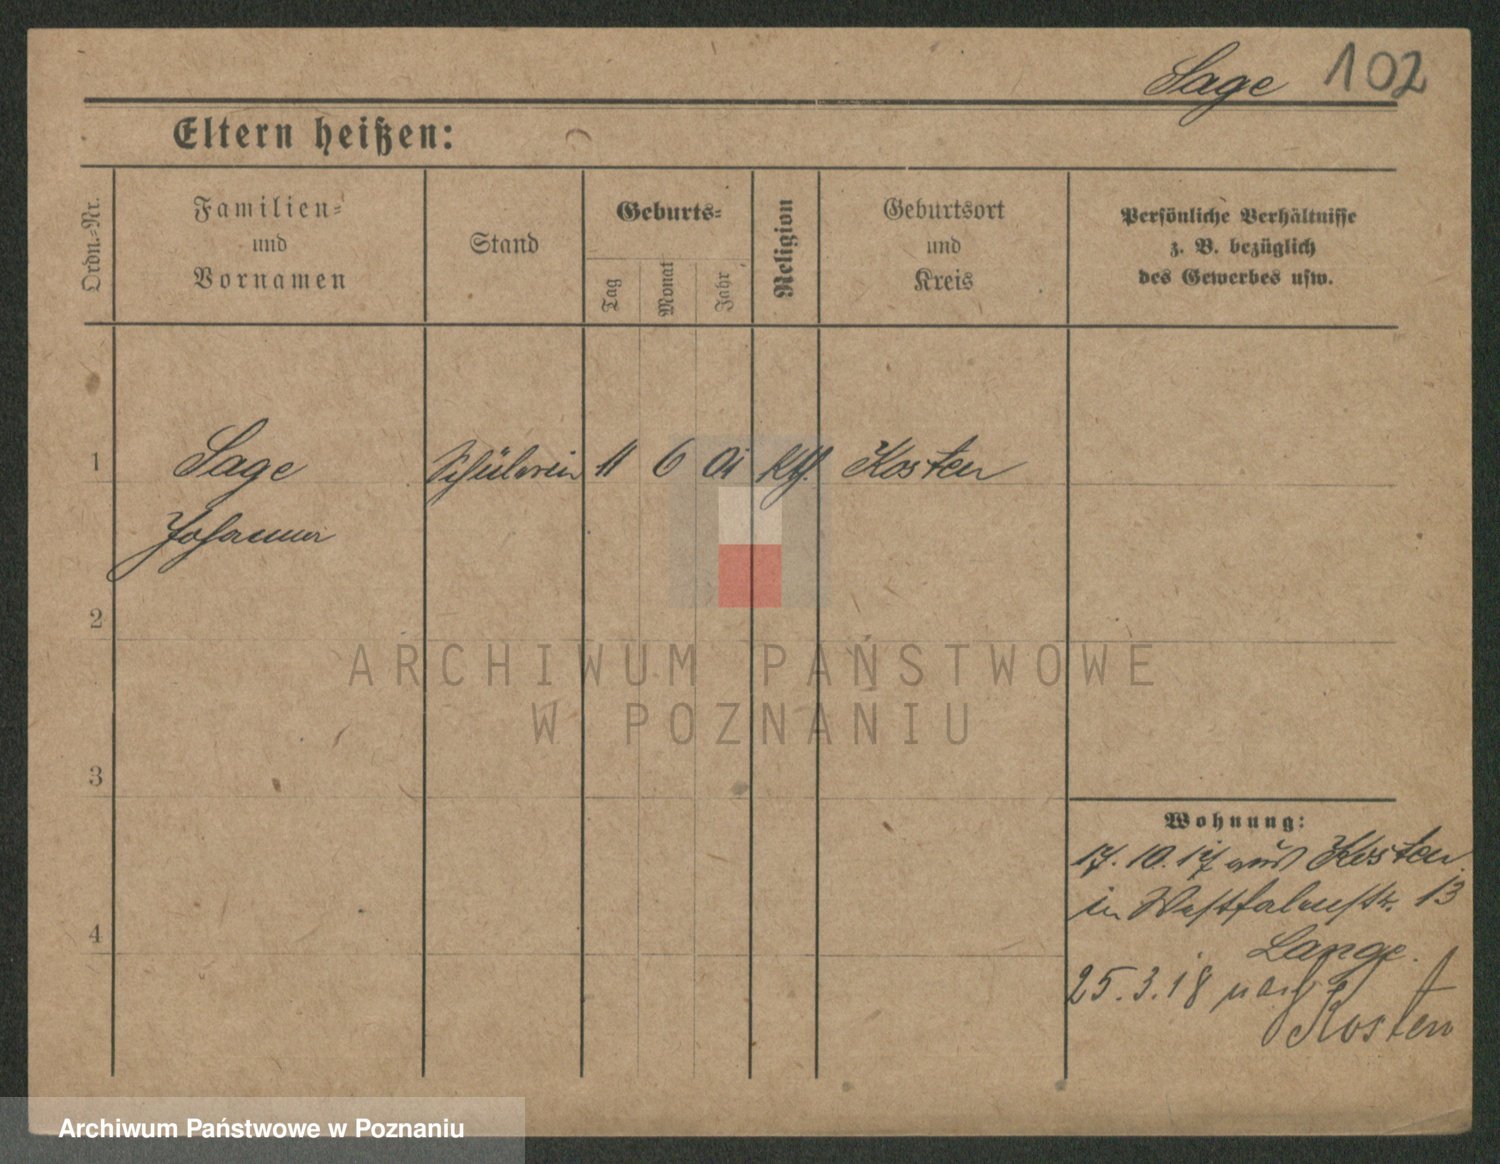 Sage 102
Eltern heißen:
Ordn.-Nr.
Familien-
und
Vornamen
Stand
Geburts-
Tag
Monat
Jahr
Religion
Geburtsort
und
Kreis
Persönliche Verhältnisse
z. B. bezüglich
des Gewerbes usw.
1 Sage Schülerin 11 6 01 kth. Kosten
Johanna
2
3
4
Wohnung:
17.10.17 aus Kosten
in Westfalenstr. 13
Lange.
25.3.18 nach
Kosten
ARCHIWUM PAŃSTWOWE
W POZNANIU
Archiwum Państwowe w Poznaniu